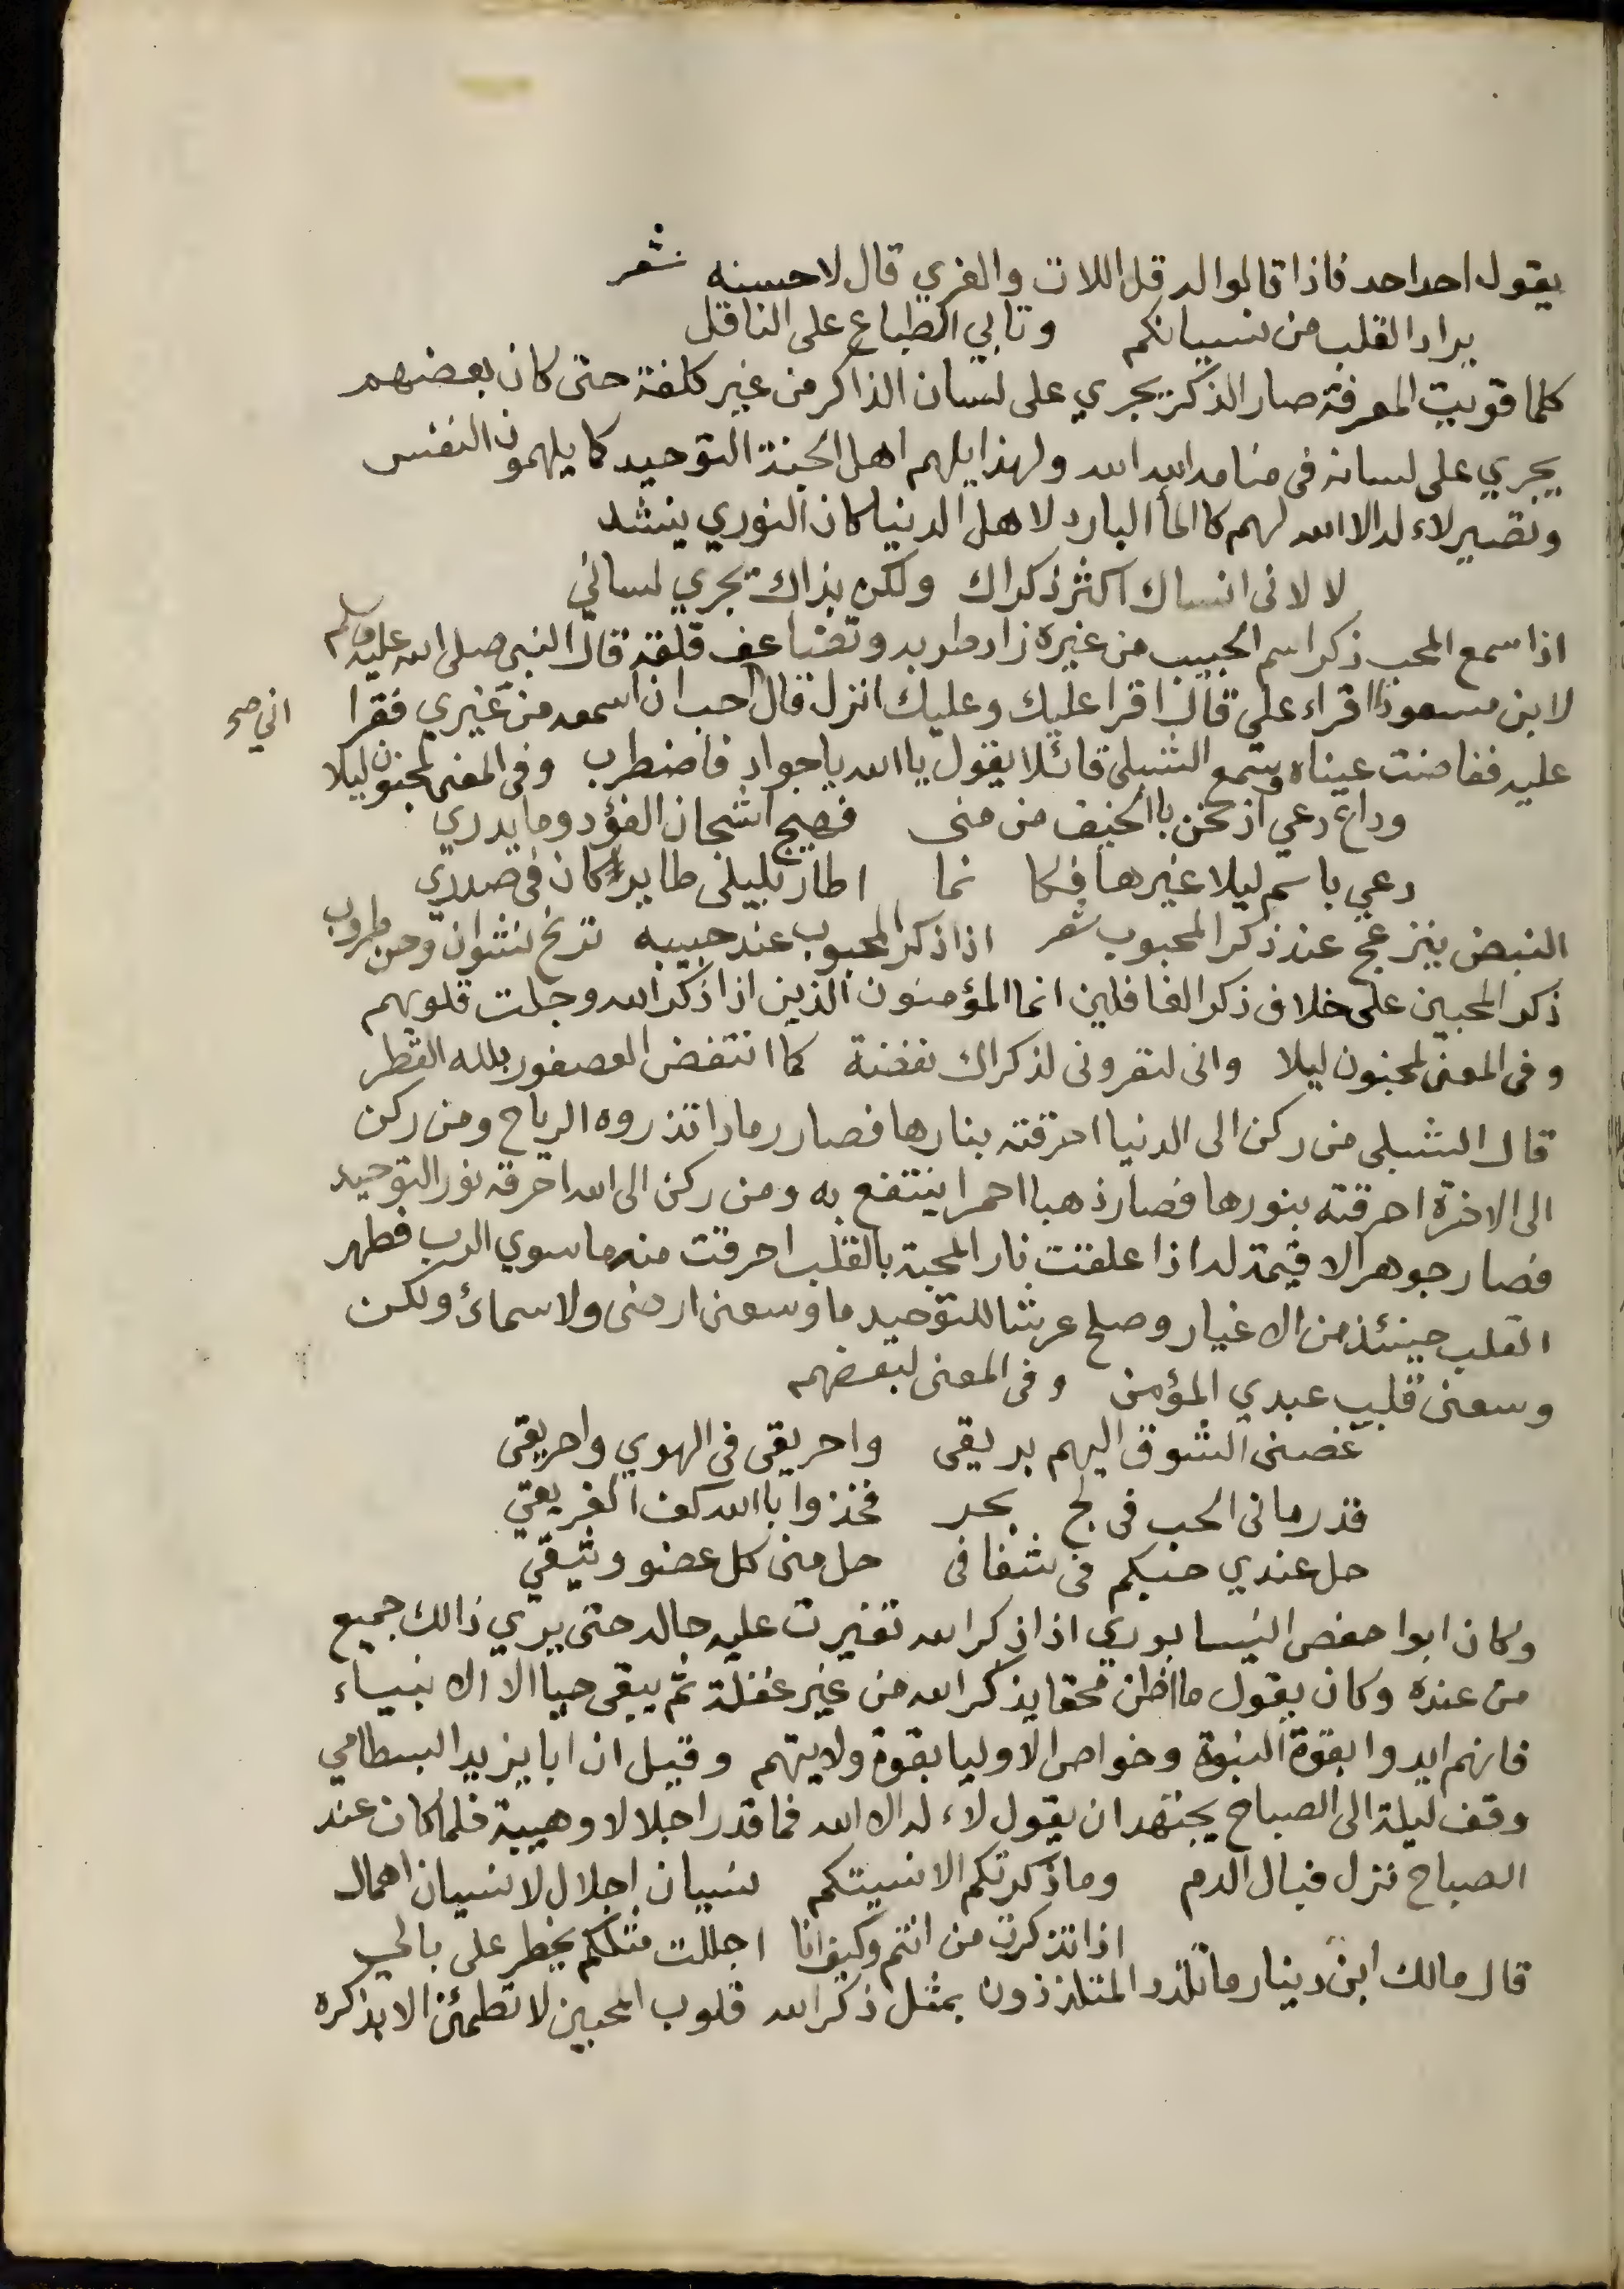 يقول احد احد فاذا قالوا له قل اللات والعزي قال لا حسنه شعر
يراد القلب من نسيانكم وتابي الطباع على الناقل
كلما قويت المعرفة صار الذكر يجري على لسان الذاكر من غير كلفة حتى كان بعضهم
يجري على لسانه في منامه الله الله ولهذا يلهم اهل الجنة التوحيد كما يلهمون النفس
وتصير لاء له الا الله لهم كا الماء البارد لاهل الدنيا كان النوري ينشد
لا لانى انساك اكثر ذكراك ولكن بذاك تجري لساني
اذا سمع المحب ذكر اسم الحبيب من غيره زاد طربه وتضاعف قلقه قال النبي صلى الله عليه وسلم
لابن مسعود اقراء علي قال اقرا عليك وعليك انزل قال احب ان اسمعه من غيري فقرا
اني صح
عليه ففاضت عيناه وسمع الشبلى قائلا يقول يا الله يا جواد فاضطرب وفى المعنى لمجنون ليلا
وداع دعي اذ نحن با الخيف من منى فهيج اشجان الفؤد وما يدري
دعي باسم ليلا غيرها فكا نما اطار بليلى طايرا كان فى صدري
النبض ينزعج عند ذكر المحبوب شعر اذا ذكر المحبوب عند حبيبه ترنح نشوان وحن طروب
ذكر المحبين على خلاف ذكر الغافلين انما المؤمنون الذين اذا ذكر الله وجلت قلوبهم
وفى المعنى لمجنون ليلا وانى لتعرونى لذكراك نفضة كما انتفض العصفور بلله القطر
قال الشبلى من ركن الى الدنيا احرقته بنارها فصار رمادا تذروه الرياح ومن ركن
الى الاخرة احرقته بنورها فصار ذهبا احمرا ينتفع به ومن ركن الى الله احرقه نور التوحيد
فصار جوهرا لا قيمة له اذا علقت نار المحبة بالقلب احرقت منه ما سوي الرب فطهر
القلب حينئذ من الاغيار وصلح عرشا للتوحيد ما وسعنى ارضى ولا سمائ ولكن
وسعنى قلب عبدي المؤمن وفى المعنى لبعضهم
غصنى الشوق اليهم بريقى واحريقى فى الهوي واحريقى
قد رمانى الحب فى لج بحر فخذوا باالله كف الغريقي
حل عندي حبكم فى شغافى حل منى كل عضو وثيقي
وكان ابوا حفص النيسابوري اذا ذكر الله تغيرت عليه حاله حتى يري ذالك جميع
من عنده وكان يقول ما اظن محقا يذكر الله من غير غفلة ثم يبقى حيا الا الانبياء
فانهم ايدوا بقوة النبوة وخواص الاوليا بقوة ولايتهم وقيل ان ابا يزيد البسطامي
وقف ليلة الى الصباح يجتهد ان يقول لاء له الا الله فما قدر اجلالا وهيبة فلما كان عند
الصباح نزل فبال الدم وما ذكرتكم الا نسيتكم نسيان اجلال لا نسيان اهمال
اذا تذكرت من انتم وكيف انا اجللت مثلكم يخطر على بالي
قال مالك ابن دينار ما تلذد المتلذذون بمثل ذكر الله قلوب المحبين لا تطمئن الا بذكره